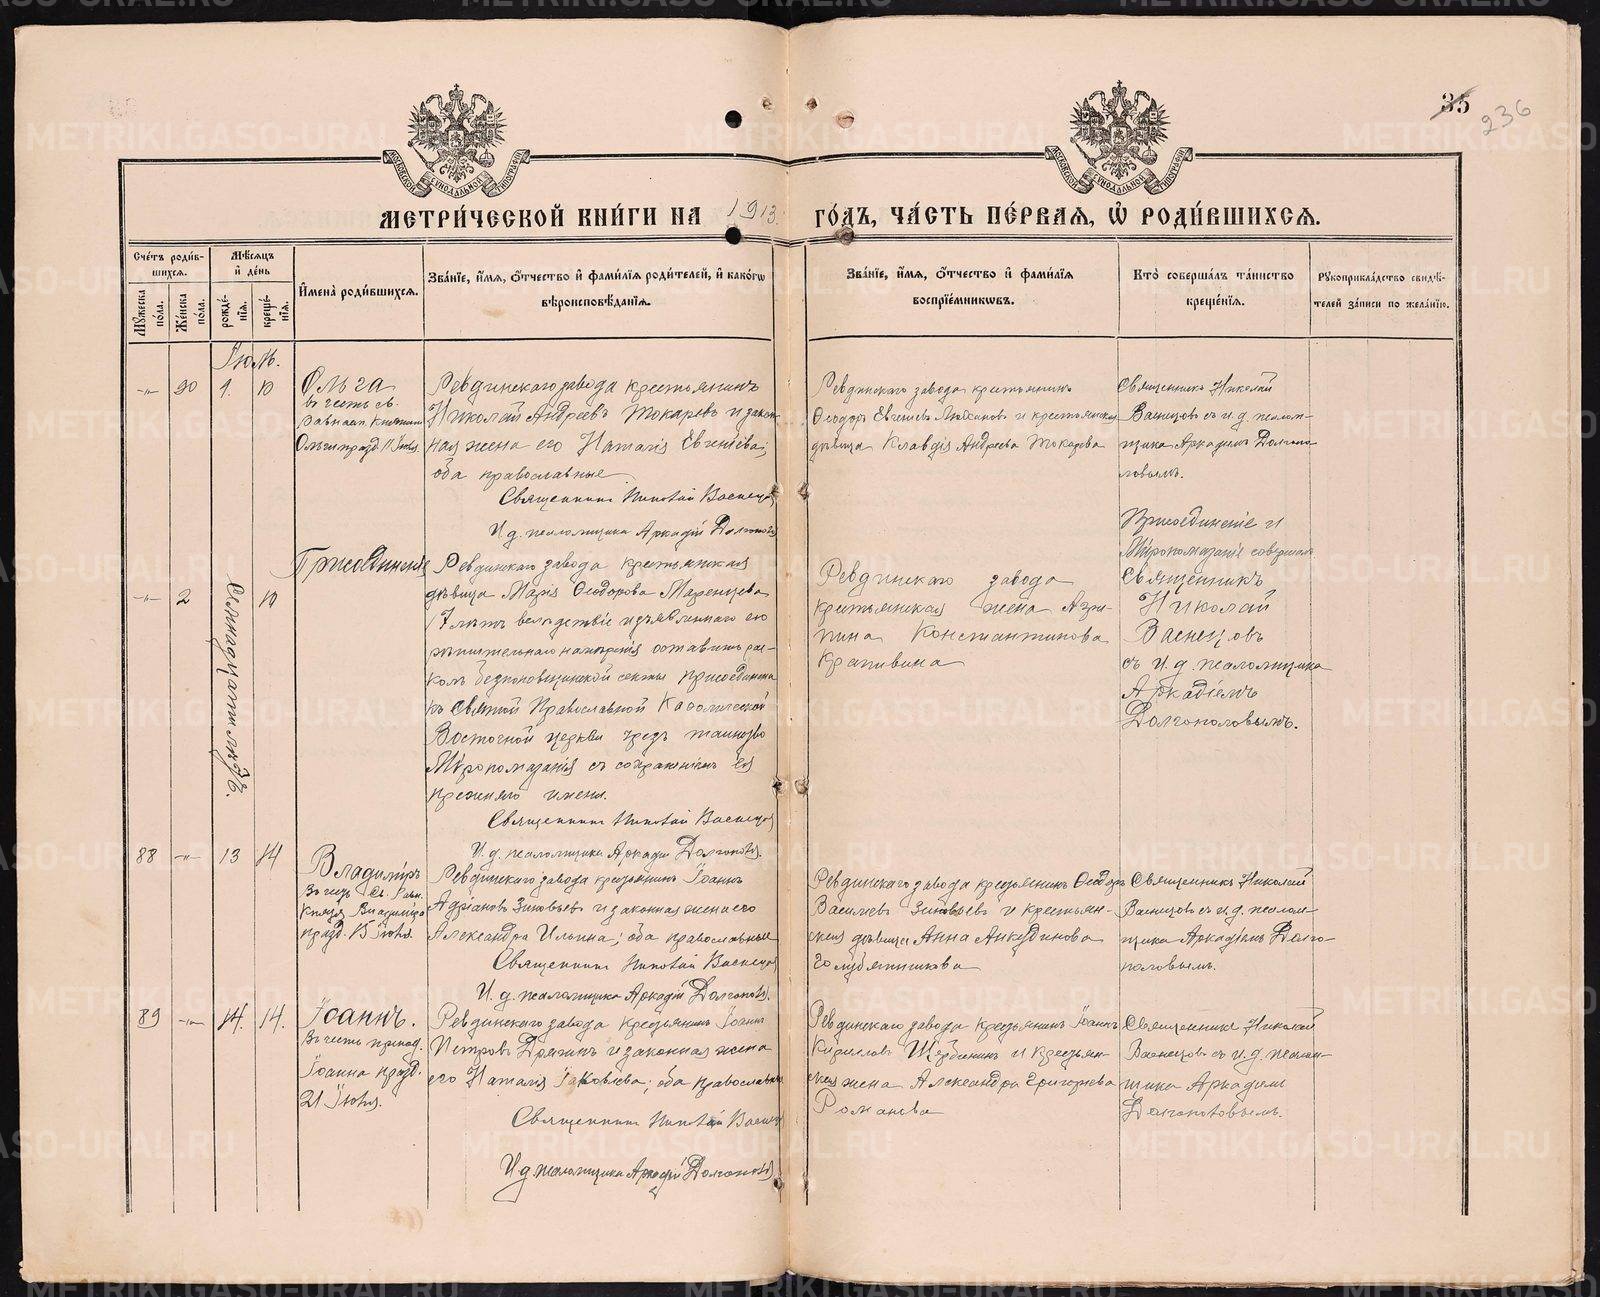 35
236
МОСКОВСКОЙ СѴНОДАЛЬНОЙ ТИПОГРАФІИ
МОСКОВСКОЙ СѴНОДАЛЬНОЙ ТИПОГРАФІИ
МЕТРИ́ЧЕСКОЙ КНИ́ГИ НА 1913 ГО́ДЪ, ЧА́СТЬ ПЕ́РВАѦ, Ѡ҆ РОДИ́ВШИХСѦ.
Сче́тъ роди́в-
шихсѧ.
Мѣ́сѧцъ
и҆ де́нь
И҆мена̀ роди́вшихсѧ.
Зва́нїе, и҆́мѧ, ѻ҆́тчество и҆ фами́лїѧ роди́телей, и҆ како́гѡ
вѣроисповѣ́данїѧ.
Зва́нїе, и҆́мѧ, ѻ҆́тчество и҆ фами́лїѧ
воспрїе́мникѡвъ.
Кто̀ соверша́лъ та́инство
креще́нїѧ.
Рꙋкоприкла́дство свидѣ́-
телей за́писи по жела́нїю.
Мꙋ́жеска
по́ла.
Же́нска
по́ла.
рожде́-
нїѧ.
креще́-
нїѧ.
Іюль.
-"- 90 9. 10
Ольга
въ честь св.
равноап. княгини
Ольги празд. 11 Іюля.
Ревдинскаго завода крестьянинъ
Николай Андреевъ Токаревъ и закон-
ная жена его Наталія Евгеніева;
оба православные
Священникъ Николай Васнецовъ
И. д. псаломщика Аркадій Долгополовъ
Ревдинскаго завода крестьянинъ
Ѳеодоръ Евгеніевъ и крестьянская
дѣвица Клавдія Андреева Токарева
Священникъ Николай
Васнецовъ съ и. д. псалом-
щика Аркадіемъ Долгопо-
ловымъ.
Присоединеніе
-"- 2 Семнадцати лѣтъ. 10
Ревдинскаго завода крестьянская
дѣвица Марія Ѳеодорова Маренцева
17 лѣтъ вслѣдствіе изъявленнаго ею
рѣшительнаго намѣренія оставить рас-
колъ безпоповщинской секты присоединена
къ Святой Православной Каѳолической
Восточной церкви чрезъ таинство
Мѵропомазанія съ сохраненіемъ ея
прежняго имени.
Священникъ Николай Васнецовъ
И. д. псаломщика Аркадій Долгополовъ.
Ревдинскаго завода
крестьянская жена Агри-
пина Константинова
Крапивина
Присоединеніе и
Мѵропомазаніе совершалъ
Священникъ
Николай
Васнецовъ
съ И. д. псаломщика
Аркадіемъ
Долгополовымъ.
88 -"- 13 14
Владиміръ
въ честь Св. Равн.
Князя Владиміра
празд. 15 Іюля.
Ревдинскаго завода крестьянинъ Іоаннъ
Адріановъ Зиновьевъ и законная жена его
Александра Ильина; оба православные
Священникъ Николай Васнецовъ
И. д. псаломщика Аркадій Долгополовъ.
Ревдинскаго завода крестьянинъ Ѳеодоръ
Василіевъ Зиновьевъ и крестьян-
ская дѣвица Анна Анкудинова
Голубятникова
Священникъ Николай
Васнецовъ съ и. д. псалом-
щика Аркадіемъ Долго-
половымъ.
89 -"- 14. 14.
Іоаннъ.
въ честь препод.
Іоанна празд.
21 Іюля.
Ревдинскаго завода крестьянинъ Іоаннъ
Петровъ и законная жена
его Наталія Іаковлева; оба православные
Священникъ Николай Васнецовъ
И. д. псаломщика Аркадій Долгополовъ
Ревдинскаго завода крестьянинъ Іоаннъ
Кирилловъ Щербининъ и крестьян-
ская жена Александра Григорьева
Романова
Священникъ Николай
Васнецовъ съ и. д. псалом-
щика Аркадіемъ
Долгополовымъ.